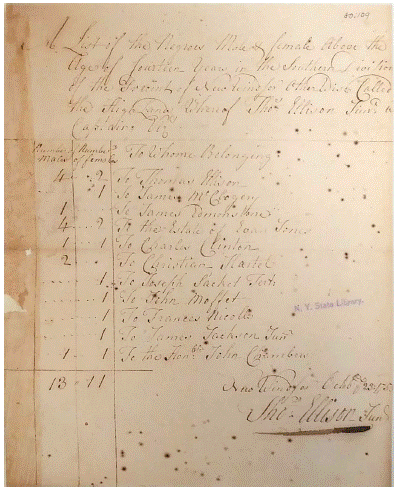 80,109
A List of the Negroes Male & female Above the
Age of fourteen Years in the Southern Division
of the Precinct of New Windsor Other Called
the Highlands Whereof Thos Ellison Junr is
Captain Viz
Number Males Number of females To Whome Belonging
4 2 To Thomas Ellison
1 To James McClogery
1 To James Edmonston
4 2 To the Estate of Evan Jones
1 1 To Charles Clinton
2 To Christian Hartel
1 To Joseph Sacket
1 To John Moffet
1 To Frances Nicolls
1 To James Jackson Junr
1 1 To the Honble John Chambers
N. Y. State Library.
13 11
New Windsor
Thos Ellison Junr